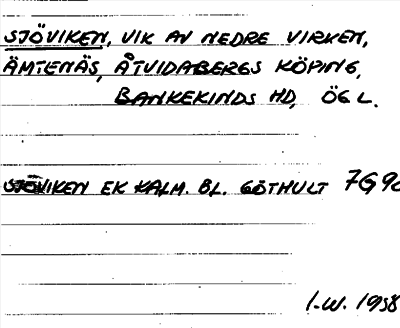 SJÖVIKEN, VIK AV NEDRE VIRKEN,
ÄMTENÄS, ÅTVIDABERGS KÖPING,
BANKEKINDS HD, ÖGL.
SJÖVIKEN EK KALM. BL. GÖTHULT 7G9c
I-W. 1958